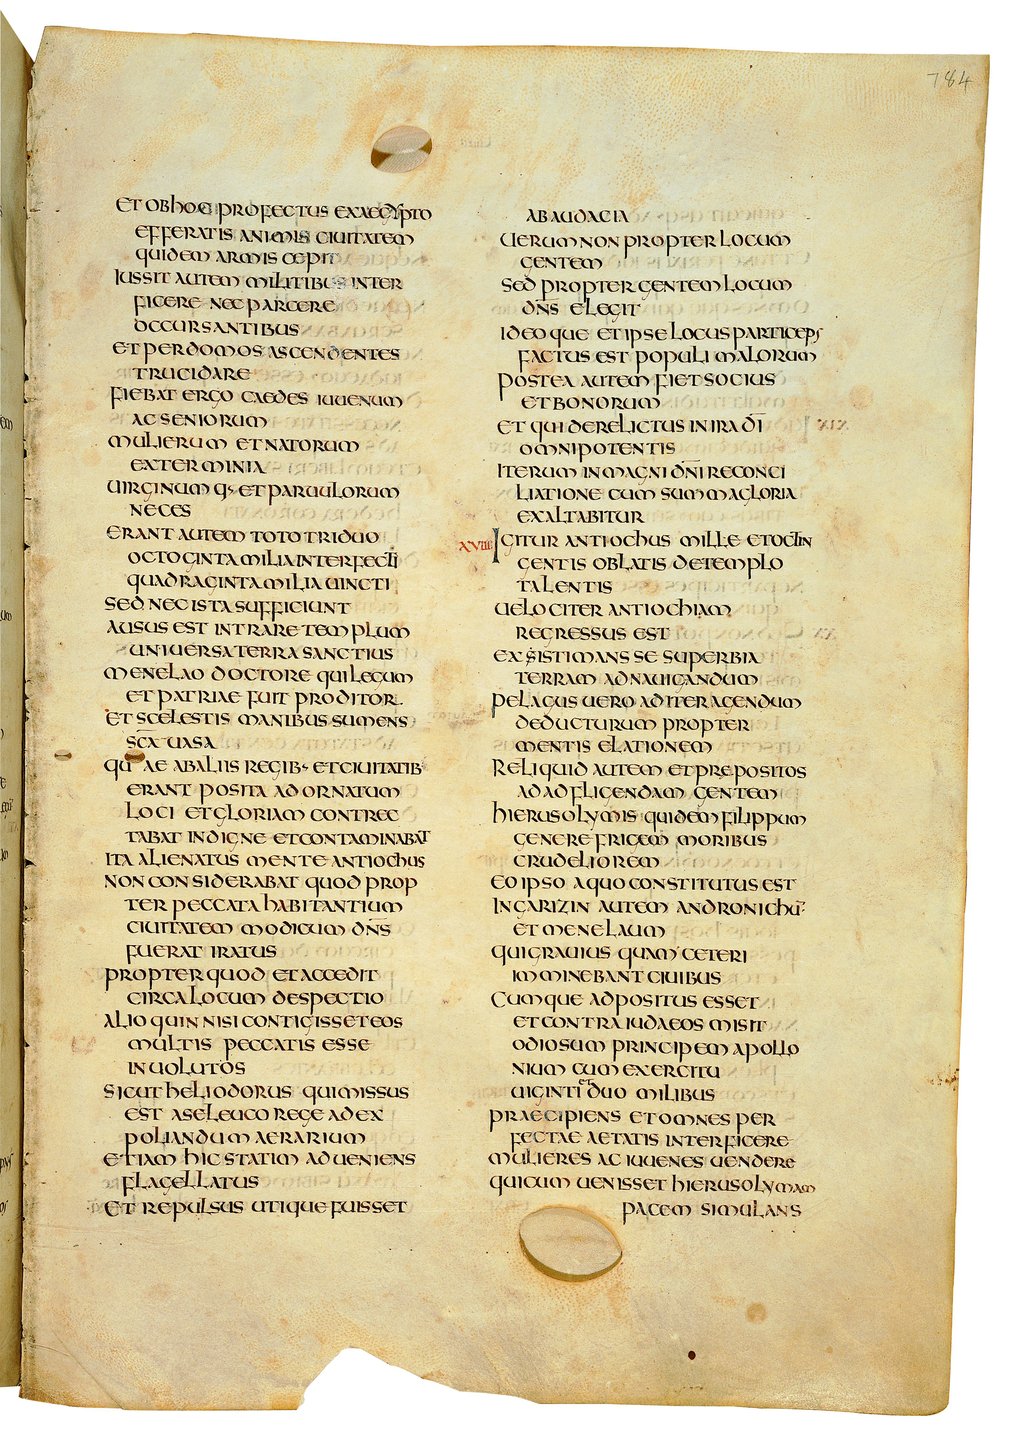 784
ET OB hOC PROFECTUS EXAEGYPTO
EFFERATIS ANIMIS CIUITATEM
QUIDEM ARMIS CEPIT
IUSSIT AUTEM MILITIBUS INTER
FICERE NEC PARCERE
OCCURSANTIBUS
ET PER DOMOS ASCENDENTES
TRUCIDARE
FIEBAT ERGO CAEDES IUUENUM
AC SENIORUM
MULIERUM ET NATORUM
EXTERMINIA
UIRGINUM Q· ET PARUULORUM
NECES
ERANT AUTEM TOTO TRIDUO
OCTOGINTA MILIA INTERFECTI
QUADRAGINTA MILIA UINCTI
SED NEC ISTA SUFFICIUNT
AUSUS EST INTRARE TEMPLUM
UNIUERSA TERRA SANCTIUS
MENELAO DOCTORE QUI LEGUM
ET PATRIAE FUIT PRODITOR
ET SCELESTIS MANIBUS SUMENS
SC̅A UASA
QUAE AB ALIIS REGIB· ET CIUITATIB·
ERANT POSITA AD ORNATUM
LOCI ET GLORIAM CONTREC
TABAT INDIGNE ET CONTAMINABAT
ITA ALIENATUS MENTE ANTIOChUS
NON CONSIDERABAT QUOD PROP
TER PECCATA hABITANTIUM
CIUITATEM MODICUM DN̅S
FUERAT IRATUS
PROPTER QUOD ET ACCEDIT
CIRCA LOCUM DESPECTIO
ALIOQUIN NISI CONTIGISSET EOS
MULTIS PECCATIS ESSE
INUOLUTOS
SICUT hELIODORUS QUI MISSUS
EST A SELEUCO REGE AD EX
POLIANDUM AERARIUM
ETIAM hIC STATIM ADUENIENS
FLAGELLATUS
ET REPULSUS UTIQUE FUISSET
AB AUDACIA
UERUM NON PROPTER LOCUM
GENTEM
SED PROPTER GENTEM LOCUM
DN̅S ELEGIT
IDEOQUE ET IPSE LOCUS PARTICEPS
FACTUS EST POPULI MALORUM
POSTEA AUTEM FIET SOCIUS
ET BONORUM
ET QUI DERELICTUS IN IRA DI̅
OMNIPOTENTIS
ITERUM IN MAGNI DN̅I RECONCI
LIATIONE CUM SUMMA GLORIA
EXALTABITUR
XVIII IGITUR ANTIOCHUS MILLE ET OCTIN
GENTIS OBLATIS DE TEMPLO
TALENTIS
UELOCITER ANTIOCHIAM
REGRESSUS EST
EXSISTIMANS SE SUPERBIA
TERRAM AD NAUIGANDUM
PELAGUS UERO AD ITER AGENDUM
DEDUCTURUM PROPTER
MENTIS ELATIONEM
RELIQUID AUTEM ET PREPOSITOS
AD ADFLIGENDAM GENTEM
hIERUSOLYMIS QUIDEM FILIPPUM
GENERE FRIGEM MORIBUS
CRUDELIOREM
EO IPSO A QUO CONSTITUTUS EST
IN GARIZIN AUTEM ANDRONIChU̅
ET MENELAUM
QUI GRAUIUS QUAM CETERI
IMMINEBANT CIUIBUS
CUMQUE ADPOSITUS ESSET
ET CONTRA IUDAEOS MISIT
ODIOSUM PRINCIPEM APOLLO
NIUM CUM EXERCITU
UIGINTI ET DUO MILIBUS
PRAECIPIENS ET OMNES PER
FECTAE AETATIS INTERFICERE
MULIERES AC IUUENES UENDERE
QUI CUM UENISSET hIERUSOLYMAM
PACEM SIMULANS